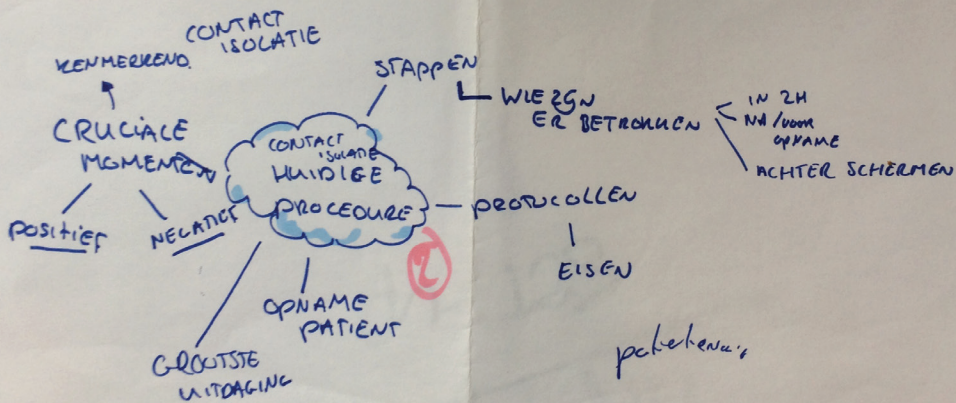 CONTACT
ISOLATIE
KENMERKEND.
CRUCIALE
MOMENTEN
POSITIEF
NEGATIEF
CONTACT
ISOLATIE
HUIDIGE
PROCEDURE
2
STAPPEN
WIE ZIJN
ER BETROKKEN
IN ZH
NA/VOOR
OPNAME
ACHTER SCHERMEN
PROTOCOLLEN
EISEN
OPNAME
PATIENT
GROOTSTE
UITDAGING